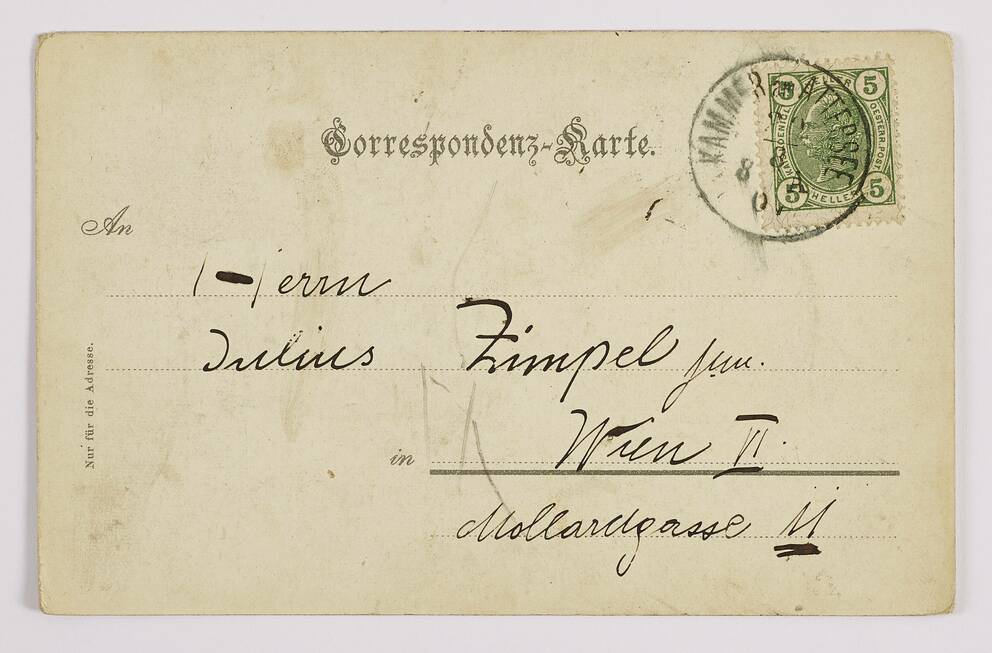 Correspondenz-Karte.
KAMMER am ATTERSEE
8
07
5 HELLER 5
KAIS. KOENIGL.
OESTERR. POST
5 HELLER 5
An
Herrn
Julius Zimpel jun.
in Wien VI.
Mollardgasse 11
Nur für die Adresse.